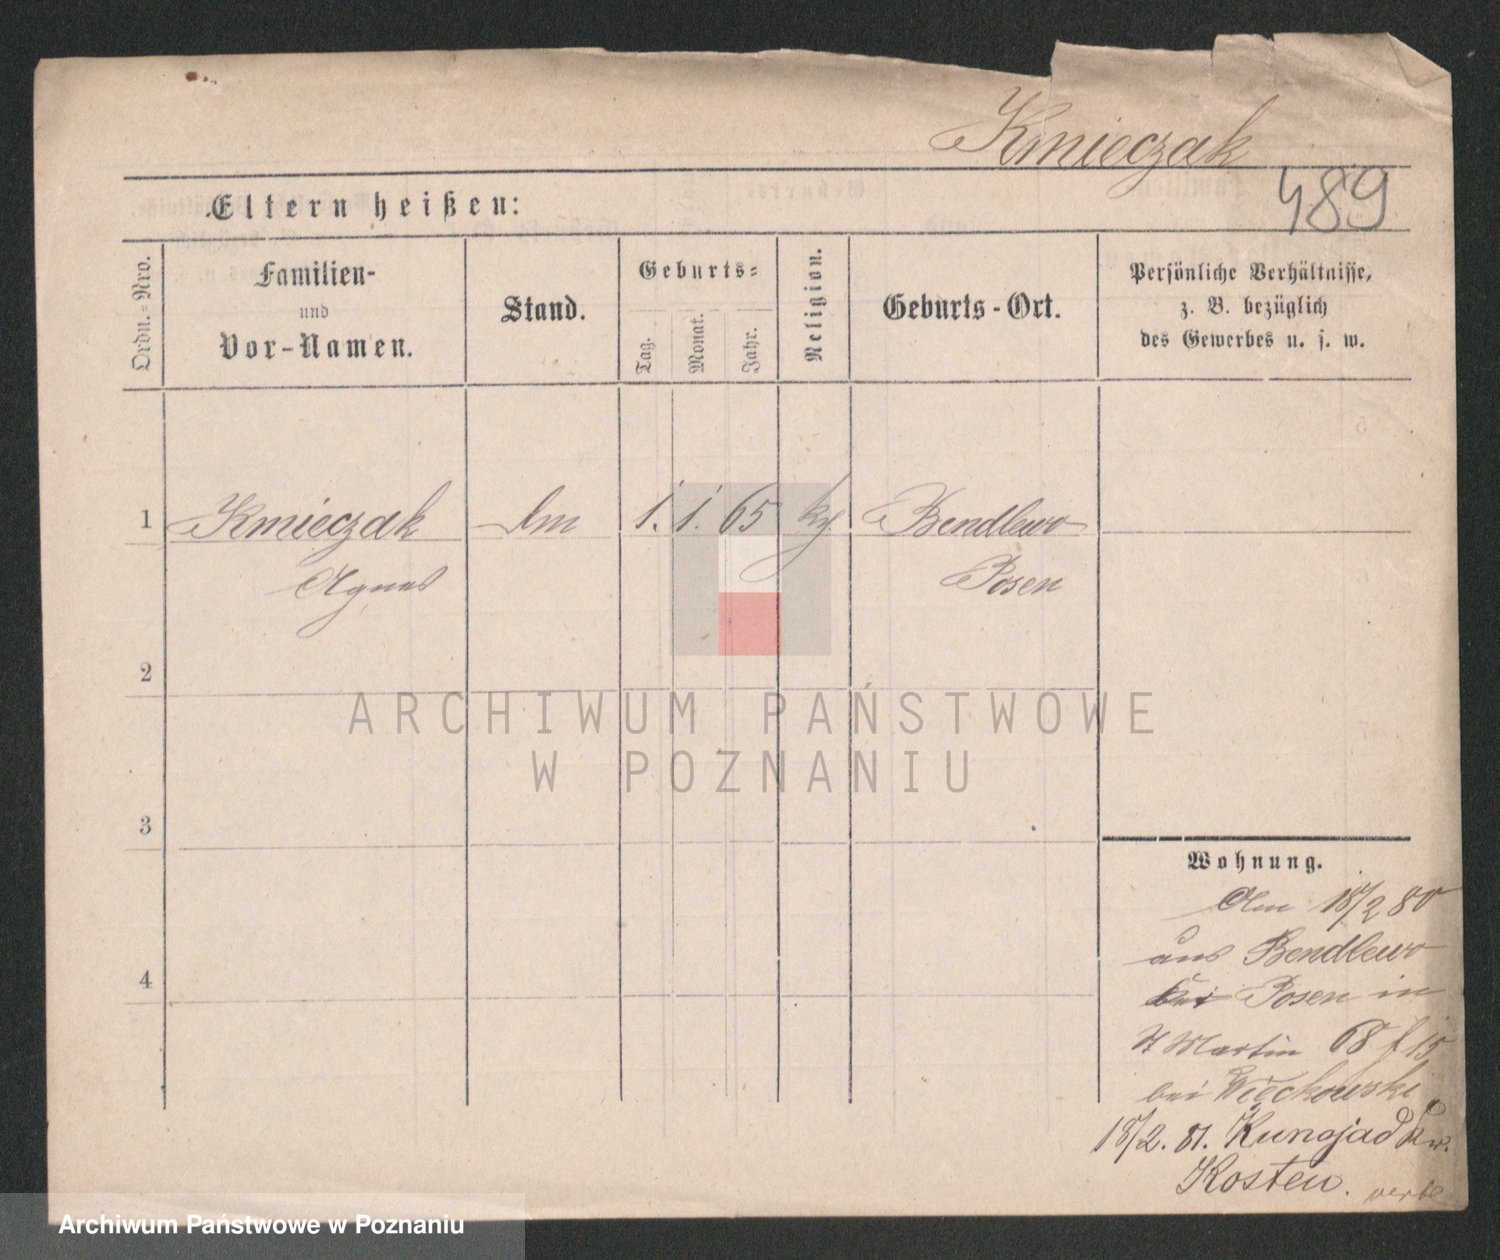 Kmieczak
489
Eltern heißen:
Ordn.=Nro.
Familien-
und
Vor-Namen.
Stand.
Geburts=
Tag.
Monat.
Jahr.
Religion.
Geburts-Ort.
Persönliche Verhältnisse,
z. B. bezüglich
des Gewerbes u. s. w.
1 Kmieczak 1. 1. 65 Bendlewo
Agnes Posen
2
3
4
Wohnung.
18/2 80
aus Bendlewo
bei Posen in
St Martin 68 15
bei Więckowski
18/2. 81. Kunojad
Kosten.
ARCHIWUM PAŃSTWOWE
W POZNANIU
Archiwum Państwowe w Poznaniu